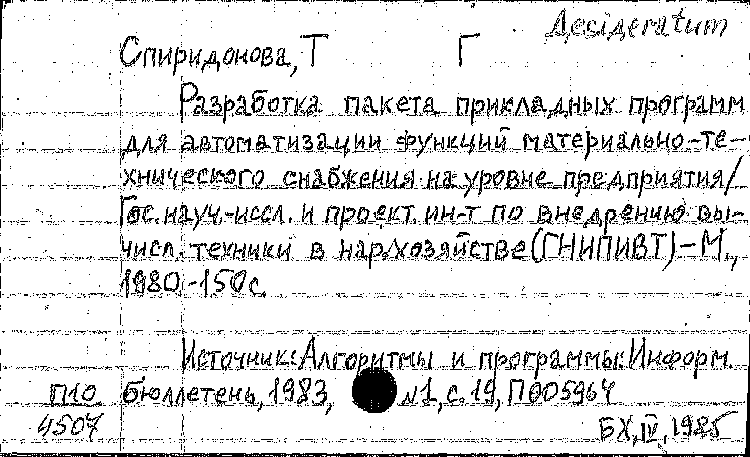 Desideratum
Спиридонова, Т Г
Разработка пакета прикладных программ
для автоматизации функций материально-те-
хнического снабжения на уровне предприятия/
Гос. науч.-иссл. и проект. ин-т по внедрению вы-
числ. техники в нар. хозяйстве (ГНИПИВТ)-М.,
1980.-150с.
Источник: Алгоритмы и программы: Информ.
П10 бюллетень, 1983, №1, с. 19, П005964
4507 БХ, IV, 1985